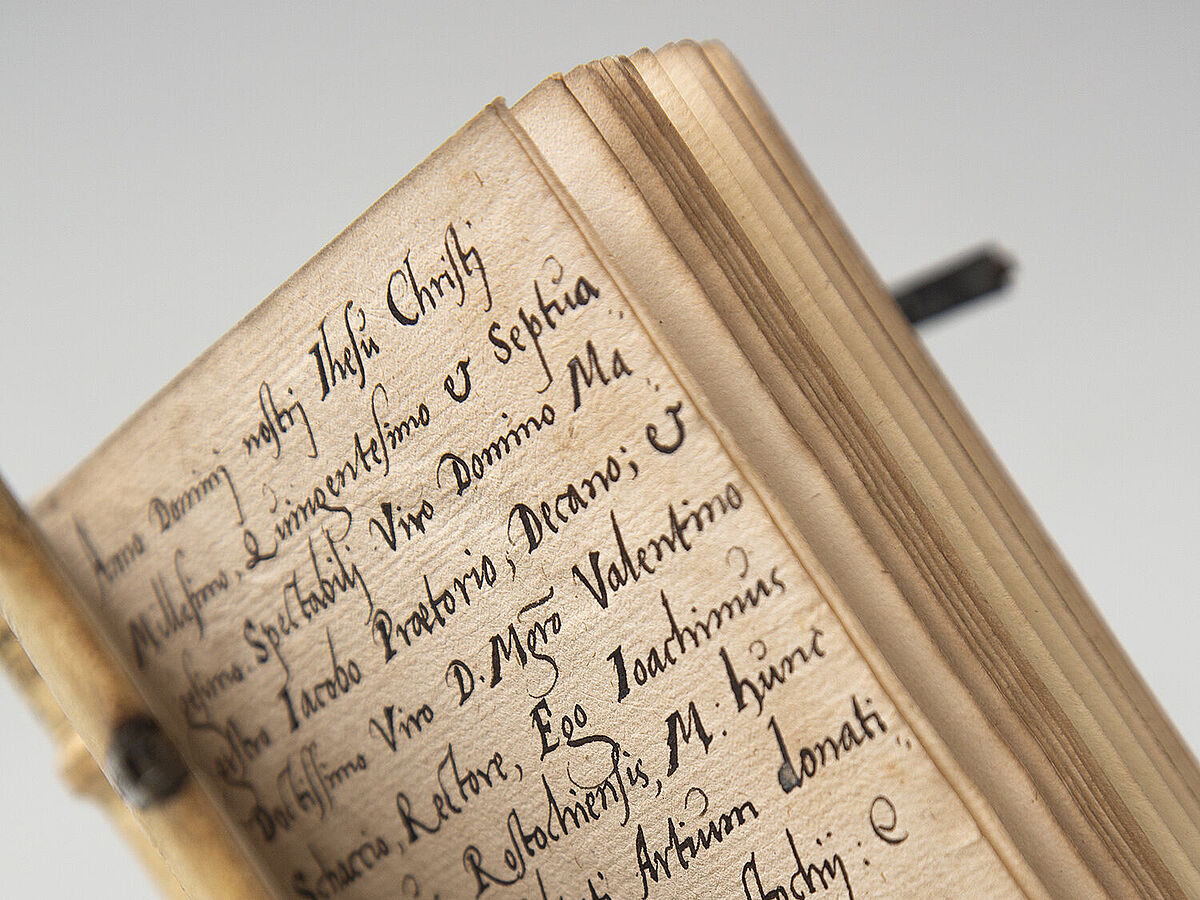 Anno Dominij nostrij Ihesu Christj
Millesimo, Quingentesimo & Septua
gesimo. Spectabilj Viro Domino Ma
gistro Iacobo Prætorio, Decano; &
Doctissimo Viro D. Mgrõ Valentino
Schaccio, Rectore, Ego Ioachimus
Rostochiensis, M: hunc
Artium donati